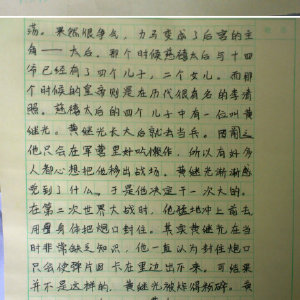 荡。果然很争气，立马变成了后宫的主
角——太后。那个时候慈禧太后与十四
爷已经有了四个儿子，二个女儿。而那
个时候的皇帝则是在历代很有名的李清
照。慈禧太后的四个儿子中有一位叫黄
继光。黄继光长大后就去当兵。因
他只会在军营里好吃懒作，所以有好多
人都心想把他移出战场。黄继光渐渐感
觉到了什么。于是他决定干一次大的。
在第二次世界大战时，他猛地冲上前去
用身体把炮口封住。其实黄继光在当
时非常缺乏知识，他一直认为封住炮口
只会使弹片因卡在里边出不来。可结果
并不是这样的，黄继光被炸得粉碎。